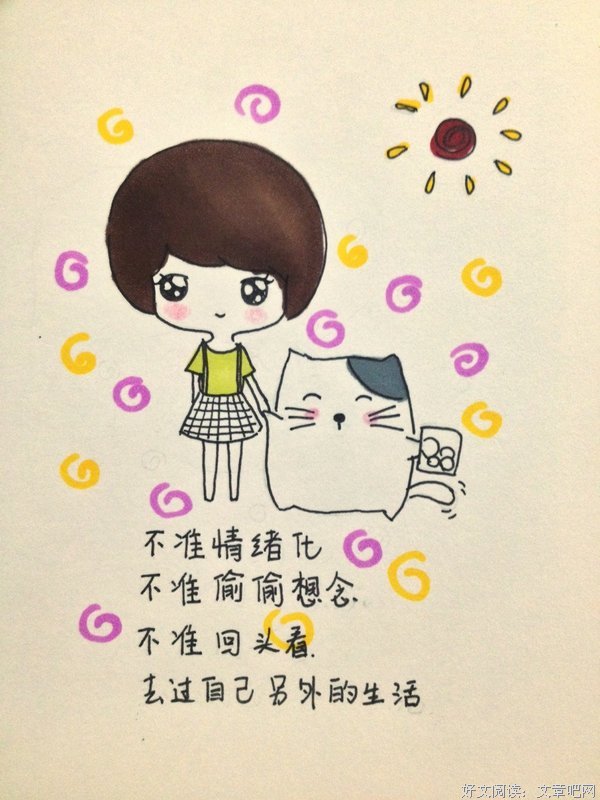 不准情绪化
不准偷偷想念
不准回头看.
去过自己另外的生活
好文阅读：文章吧网